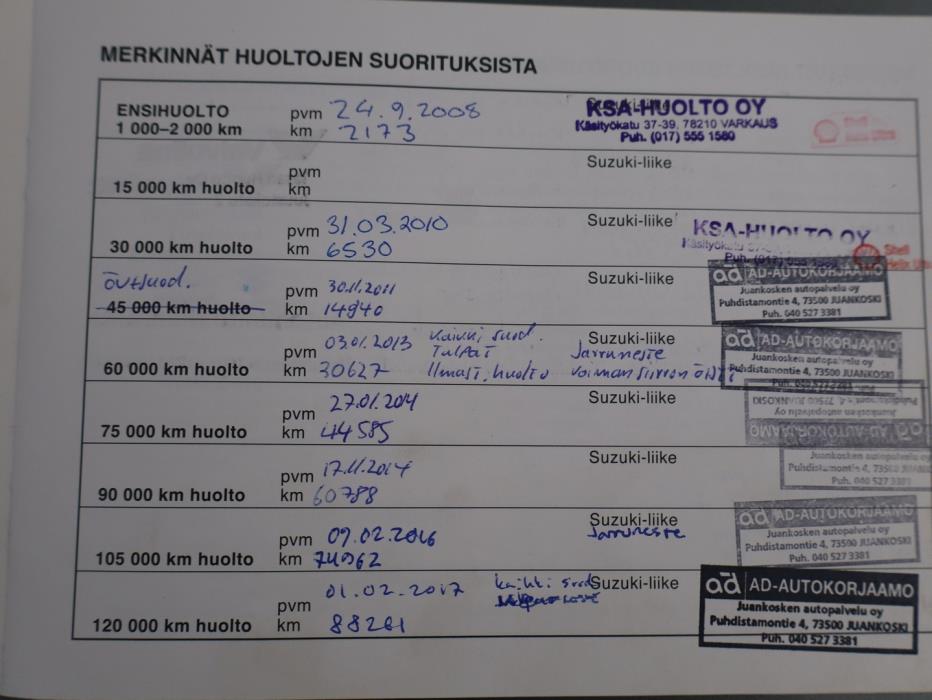 MERKINNÄT HUOLTOJEN SUORITUKSISTA
ENSIHUOLTO pvm 24.9.2008 Suzuki-liike KSA-HUOLTO OY
1 000–2 000 km km 2173 Käsityökatu 37-39, 78210 VARKAUS
Puh. (017) 555 1580
pvm Suzuki-liike
15 000 km huolto km
pvm 31.03.2010 Suzuki-liike KSA-HUOLTO OY
30 000 km huolto km 6530 Käsityökatu
Puh. (017) 555 Shell
Helix
pvm 30.11.2011 Suzuki-liike ad AD-AUTOKORJAAMO
45 000 km huolto km 14940 Juankosken autopalvelu oy
Puhdistamontie 4, 73500 JUANKOSKI
Puh. 040 527 3381
pvm 03.01.2013 Kaikki suod. Suzuki-liike ad AD-AUTOKORJAAMO
Tulpat Jarruneste Juankosken autopalvelu oy
60 000 km huolto km 30627 Ilmast. huolto voimansiirron Puhdistamontie 4, 73500 JUANKOSKI
Puh. 040 527 3381
pvm 27.01.2014 Suzuki-liike Puhdistamontie 4, 73500 JUANKOSKI
Juankosken autopalvelu oy
75 000 km huolto km 44585 ad AD-AUTOKORJAAMO
pvm 17.11.2014 Suzuki-liike Juankosken autopalvelu
Puhdistamontie 4, 73500 JUANKOSKI
90 000 km huolto km 60788 Puh. 040 527 3381
pvm 09.02.2016 Suzuki-liike ad AD-AUTOKORJAAMO
Jarruneste Juankosken autopalvelu oy
105 000 km huolto km 74962 Puhdistamontie 4, 73500 JUANKOSKI
Puh. 040 527 3381
pvm 01.02.2017 kaikki suod Suzuki-liike ad AD-AUTOKORJAAMO
Juankosken autopalvelu oy
120 000 km huolto km 88261 Puhdistamontie 4, 73500 JUANKOSKI
Puh. 040 527 3381